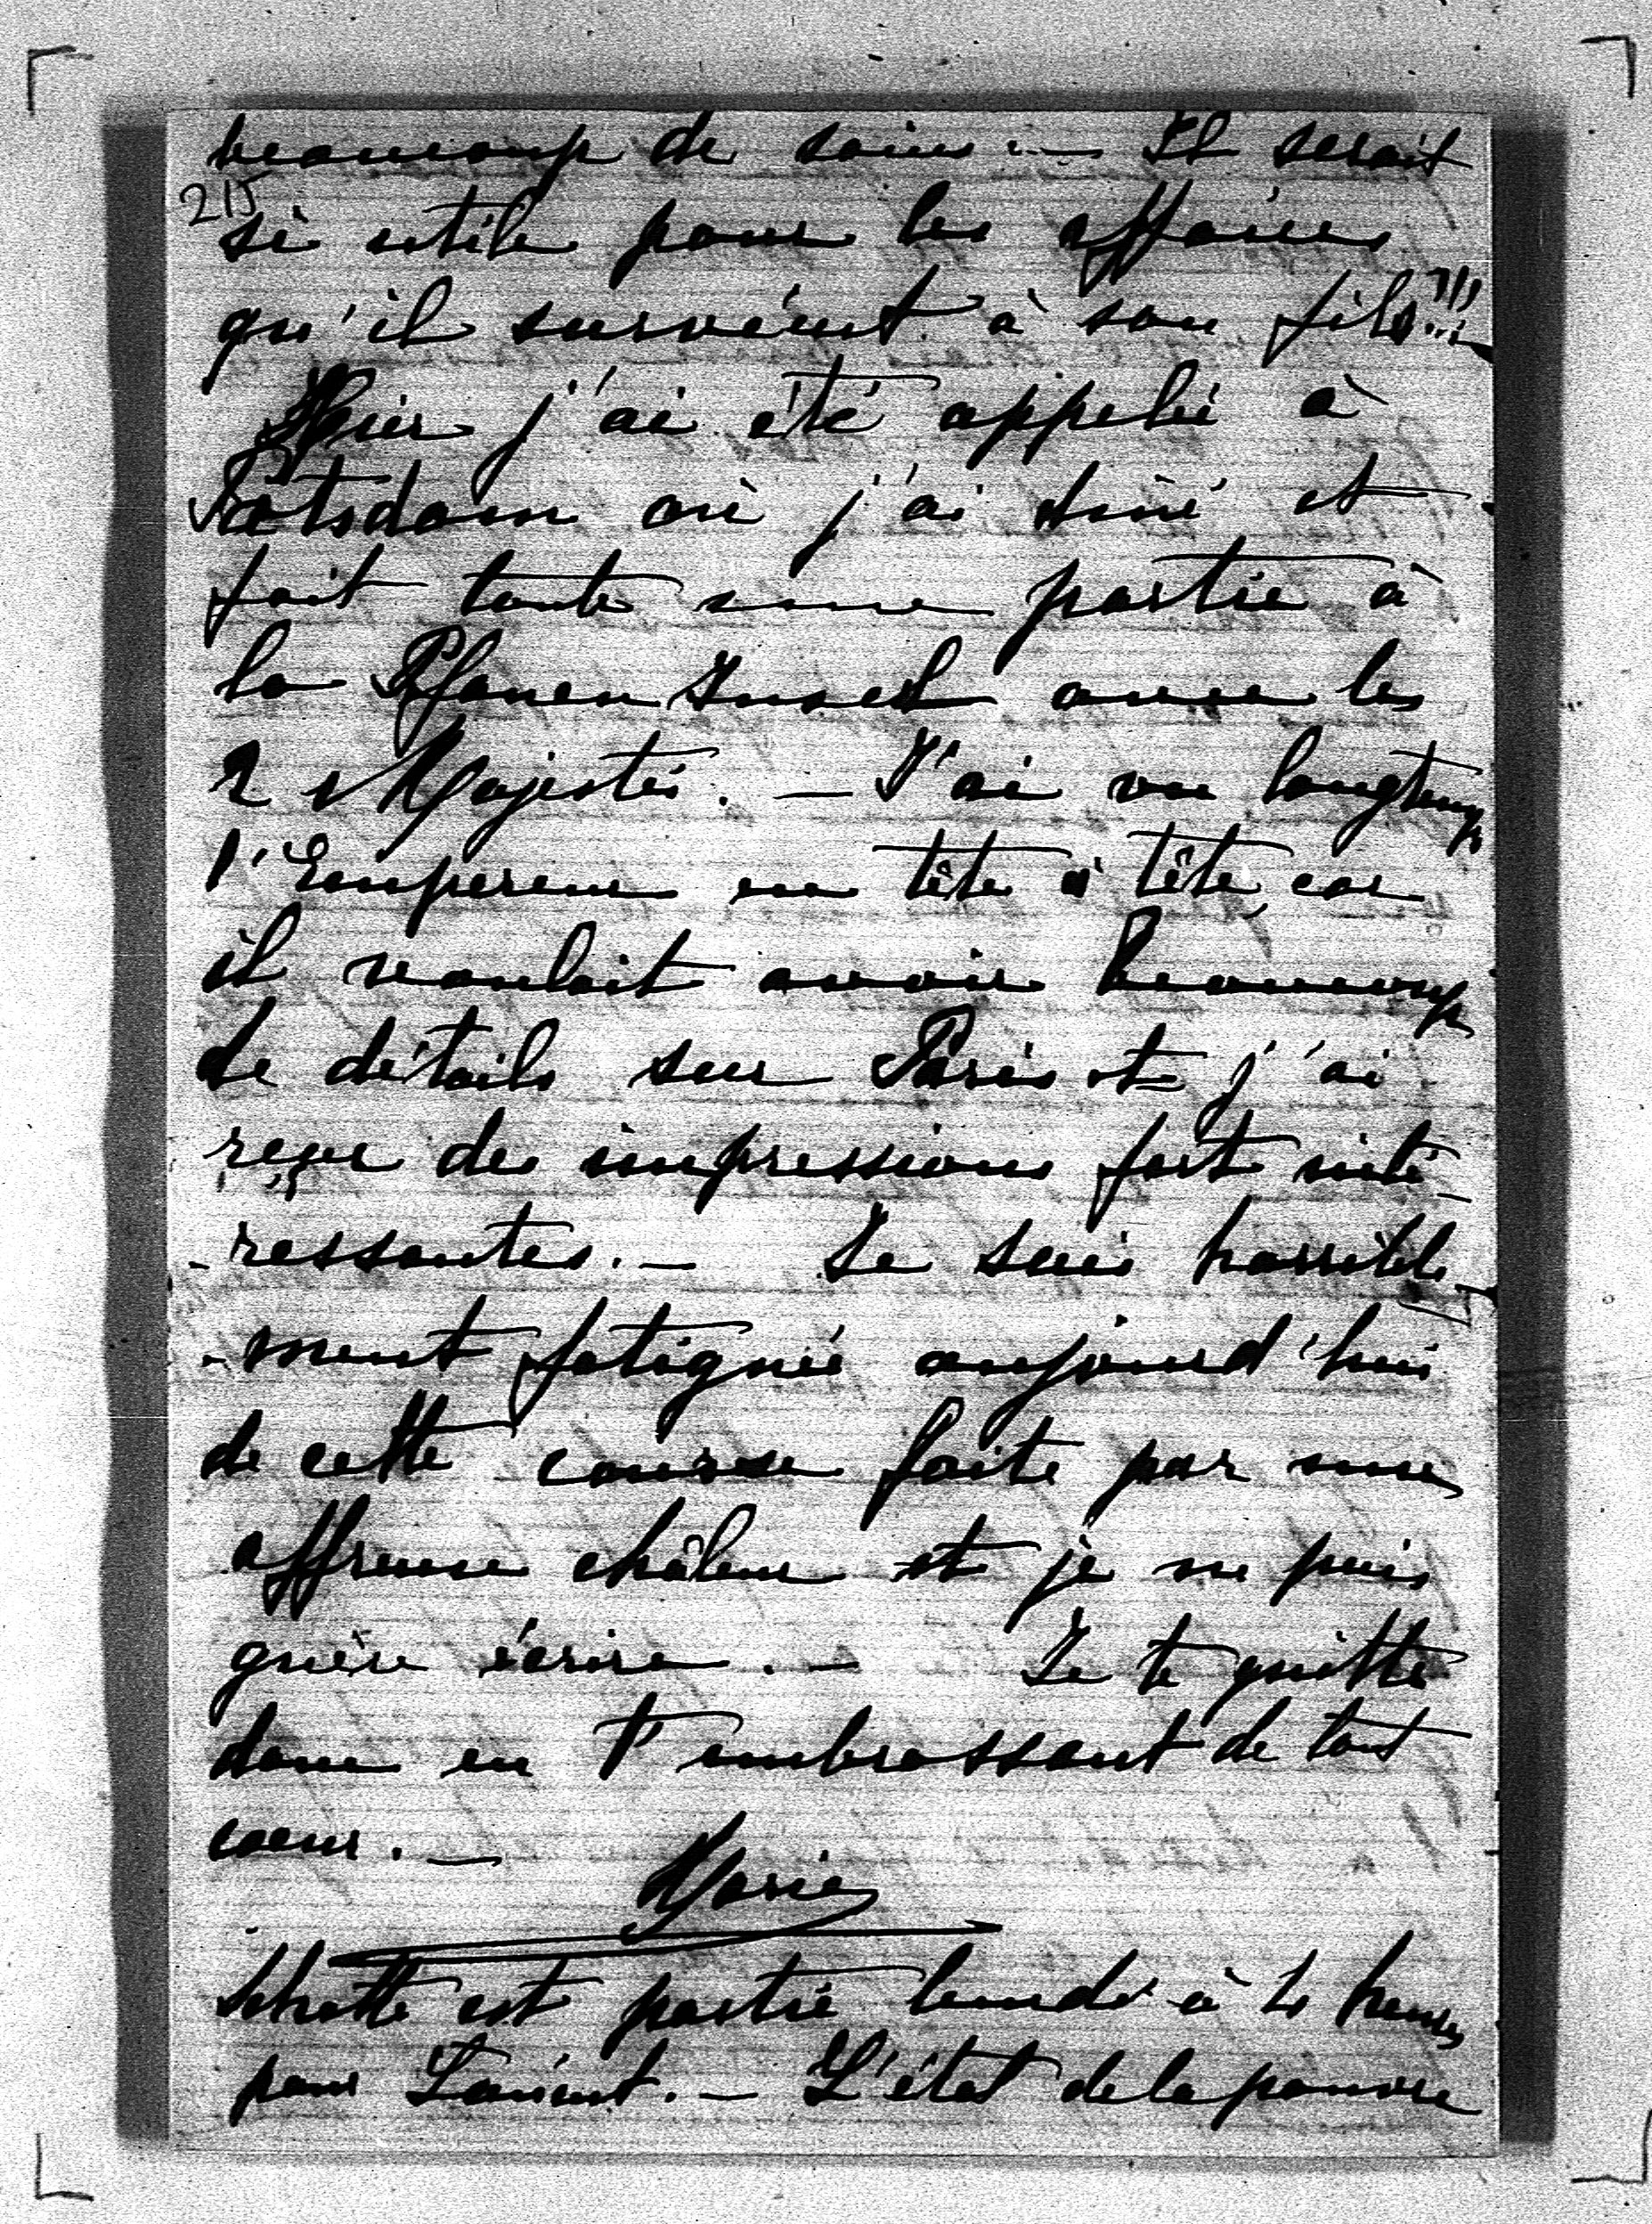 beaucoup de soins. — Il serait
215
si utile pour les affaires
qu'il survécut à son fils!!!
Hier j'ai été appelée à
Potsdam où j'ai dîné et
fait toute une partie à
la Pfauen Insel avec les
2 Majestés. — J'ai vu longtemps
l'Empereur en tête à tête, car
il voulait avoir beaucoup
de détails sur Paris et j'ai
reçu des impressions fort inté-
-ressantes. — Je suis horrible-
-ment fatiguée aujourd'hui
de cette course faite par une
affreuse châleur et je ne puis
guère écrire. — Je te quitte
donc en t'embrassant de tout
coeur. —
Marie
est partie lundi à 4 heures
pour . — L'état de la pauvre